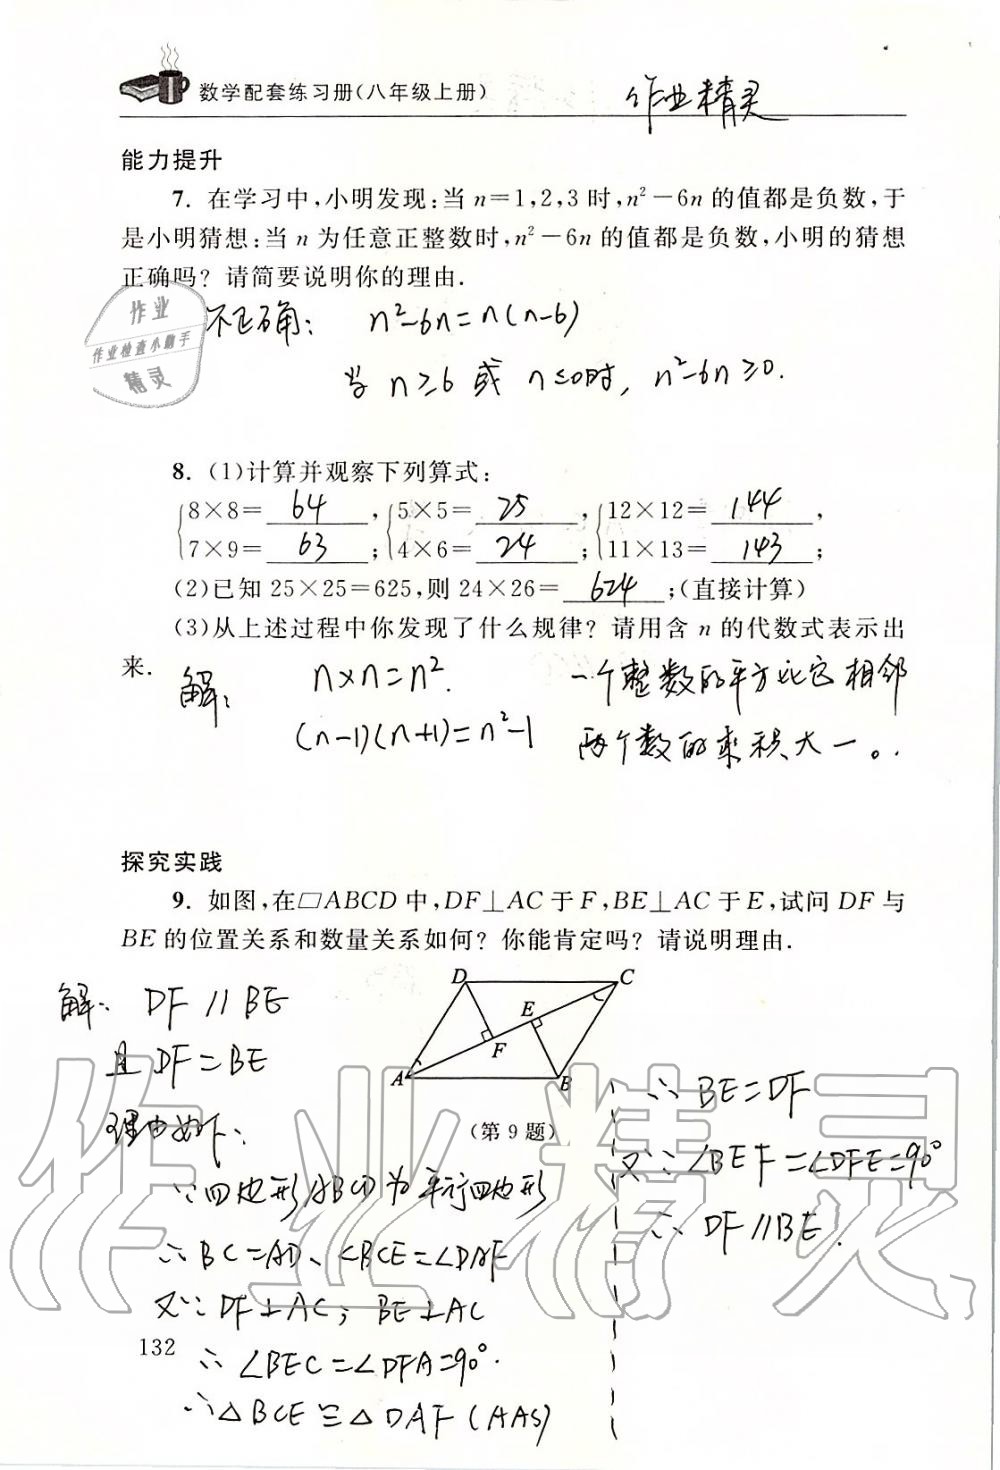 数学配套练习册(八年级上册)
作业精灵
能力提升
7. 在学习中,小明发现:当 n=1,2,3 时,n²-6n 的值都是负数,于
是小明猜想:当 n 为任意正整数时,n²-6n 的值都是负数,小明的猜想
正确吗? 请简要说明你的理由.
作业
作业检查小助手
精灵
不正确: n²-6n=n(n-6)
当 n≥6 或 n≤0时, n²-6n≥0.
8. (1)计算并观察下列算式:
8×8= 64 , 5×5= 25 , 12×12= 144 ,
7×9= 63 ; 4×6= 24 ; 11×13= 143 ;
(2)已知 25×25=625,则 24×26= 624 ;(直接计算)
(3)从上述过程中你发现了什么规律? 请用含 n 的代数式表示出
来.
解: n×n=n².
(n-1)(n+1)=n²-1
一个整数的平方比它相邻
两个数的乘积大一。.
探究实践
9. 如图,在□ABCD 中,DF⊥AC 于 F,BE⊥AC 于 E,试问 DF 与
BE 的位置关系和数量关系如何? 你能肯定吗? 请说明理由.
D C
E
F
A B
(第 9 题)
解: DF∥BE
且 DF=BE
理由如下:
∵四边形ABCD为平行四边形
∴BC=AD、∠BCE=∠DAF
又∵DF⊥AC; BE⊥AC
∴∠BEC=∠DFA=90°.
∴△BCE≌△DAF(AAS)
∴BE=DF
又∵∠BEF=∠DFE=90°
∴DF∥BE.
132
作业精灵